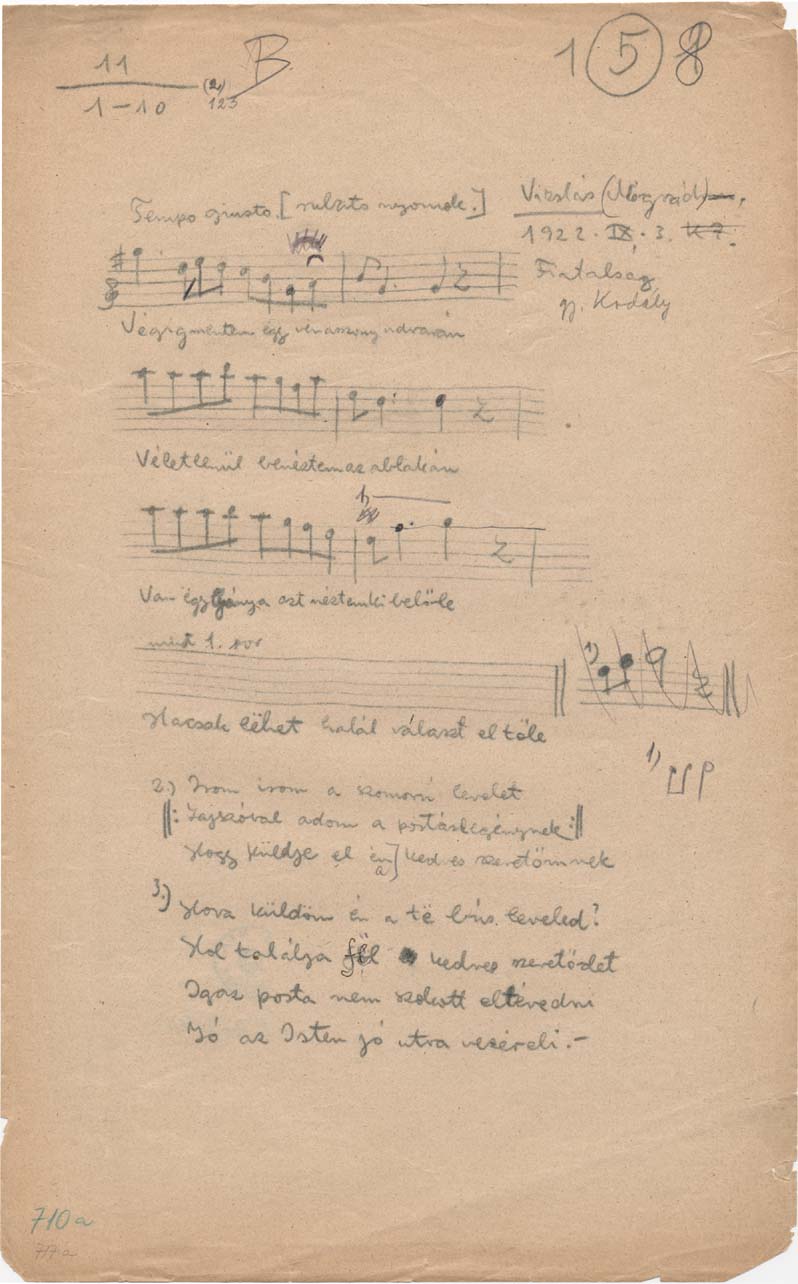 11
1-10
(2,)
123
B
1 5 8
Tempo giusto. [rubato nyomok.]
Vizslás (Nógrád)
1922. IX. 3. K 7.
Fiatalság
gy. Kodály
Végigmentem egy vénasszony udvarán
Véletlenül benéztem az ablakán
1)
Van égy lánya azt néztem ki belőle
mint 1. sor
1)
Hacsak lëhet halál választ el tőle
1)
2.) Irom irom a szomorú levelet
Jajszóval adom a postáslegénynek
Hogy küldje el én] kedves szeretőmnek
a
3.) Hova küldöm én a të bús leveled?
Hol találja fël kedves szeretődet
Igaz posta nem szokott eltévedni
Jó az Isten jó utra vezérëli.-
710a
717a